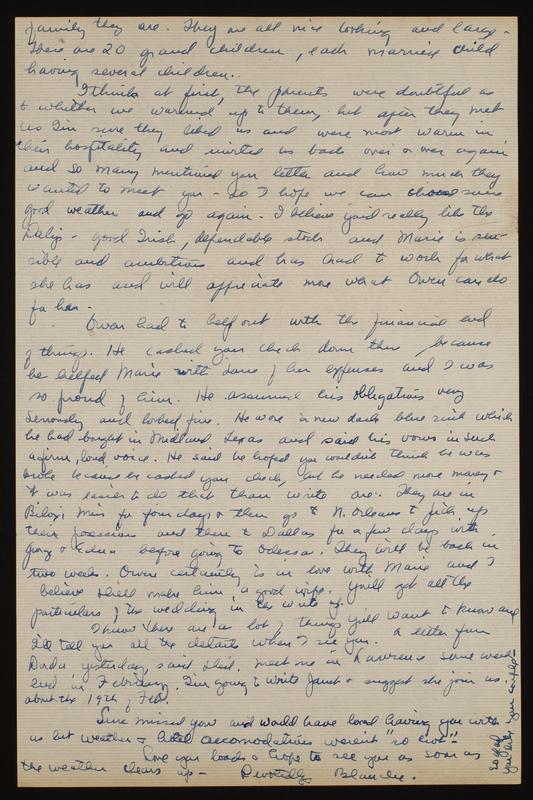 family they are. They are all nice looking and large.
There are 20 grand children, each married child
having several children.
I think at first, the parents were doubtful as
to whether we warmed up to them, but after they met
us I'm sure they liked us and were most warm in
their hospitality and invited us back over & over again
and so many mentioned your letter and how much they
wanted to meet you - so I hope we can some
good weather and go again. I believe you'd really like the
- good Irish, dependable stock and Marie is sen-
sible and ambitious and has had to work for what
she has and will appreciate more what Owen can do
for her.
Owen had to help out with the financial end
of things. He cashed your check down there, because
he helped Marie with some of her expenses and I was
so proud of him. He assumed his obligations very
seriously and looked fine. He wore a new dark blue suit which
he had bought in Midland Texas and said his vows in such
a firm, loud voice. He said he hoped you wouldn't think he was
broke because he cashed your check, but he needed more money &
it was easier to do that than write one. They are in
Biloxi Miss for four days & then go to N. Orleans to pick up
their possessions and then to Dallas for a few days with
George & Edna before going to Odessa. They'll be back in
two weeks. Owen certainly is in love with Marie and I
believe she'll make him a good wife. You'll get all the
particulars of the wedding in the write up.
I know there are a lot of things you'll want to know and
I'll tell you all the details when I see you. A letter from
yesterday said she'd meet me in Lawrence some week
end in February. I'm going to write Janet & suggest she join us.
about the 19th of Feb.
Sure missed you and would have loved having you with
us but weather & hotel accomodations weren't "so hot".
Love you loads & hope to see you as soon as
the weather clears up - Devotedly Blanche.
So glad
you like your